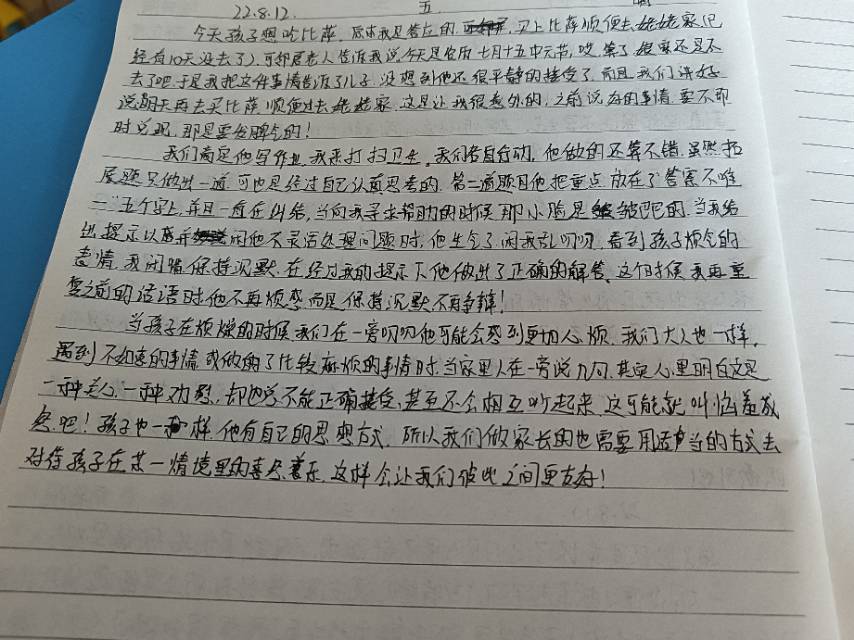 22.8.12. 五 晴
今天孩子想吃比萨，原本我是答应的，买上比萨顺便去姥姥家（已
经有10天没去了），可邻居老人告诉我说今天是农历七月十五中元节，哎，算了姥家还是不
去了吧，于是我把这件事情告诉了儿子，没想到他还很平静的接受了，而且我们讲好
说明天再去买比萨，顺便过去姥姥家，这是让我很意外的，之前说好的事情要不即
时兑现，那是要发脾气的！
我们商定他写作业，我来打扫卫生，我们各自行动，他做的还算不错，虽然拓
展题只做出一道，可也是经过自己认真思考的，第二道题目他把重点放在了“答案不唯
一”五个字上，并且一直在纠结，当向我寻求帮助的时候那小脸是皱巴巴的，当我给
出提示以后并闲他不灵活处理问题时，他生气了闲我乱叨叨，看到孩子烦气的
表情，我闭嘴保持沉默，在经过我的提示下他做出了正确的解答，这个时候我再重
复之前的话语时他不再烦感而是保持沉默，不再争辩！
当孩子在烦燥的时候我们在一旁叨叨他可能会感到更加心烦，我们大人也一样，
遇到不如意的事情或做的了比较麻烦的事情时，当家里人在一旁说几句，其实心里明白这是
一种关心，一种劝慰，却也总不能正确接受，甚至还会相互吵起来，这可能就叫恼羞成
怒吧！孩子也一样，他有自己的思想方式，所以我们做家长的也需要用适当的方式去
对待孩子在某一情境里的喜怒哀乐，这样会让我们彼此之间更友好！